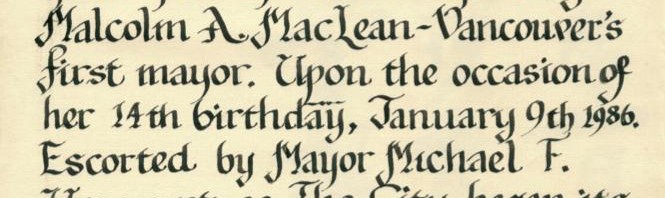 Malcolm A. MacLean-Vancouver's
first mayor. Upon the occasion of
her 14th birthday, January 9th 1986.
Escorted by Mayor Michael F.
The City began its